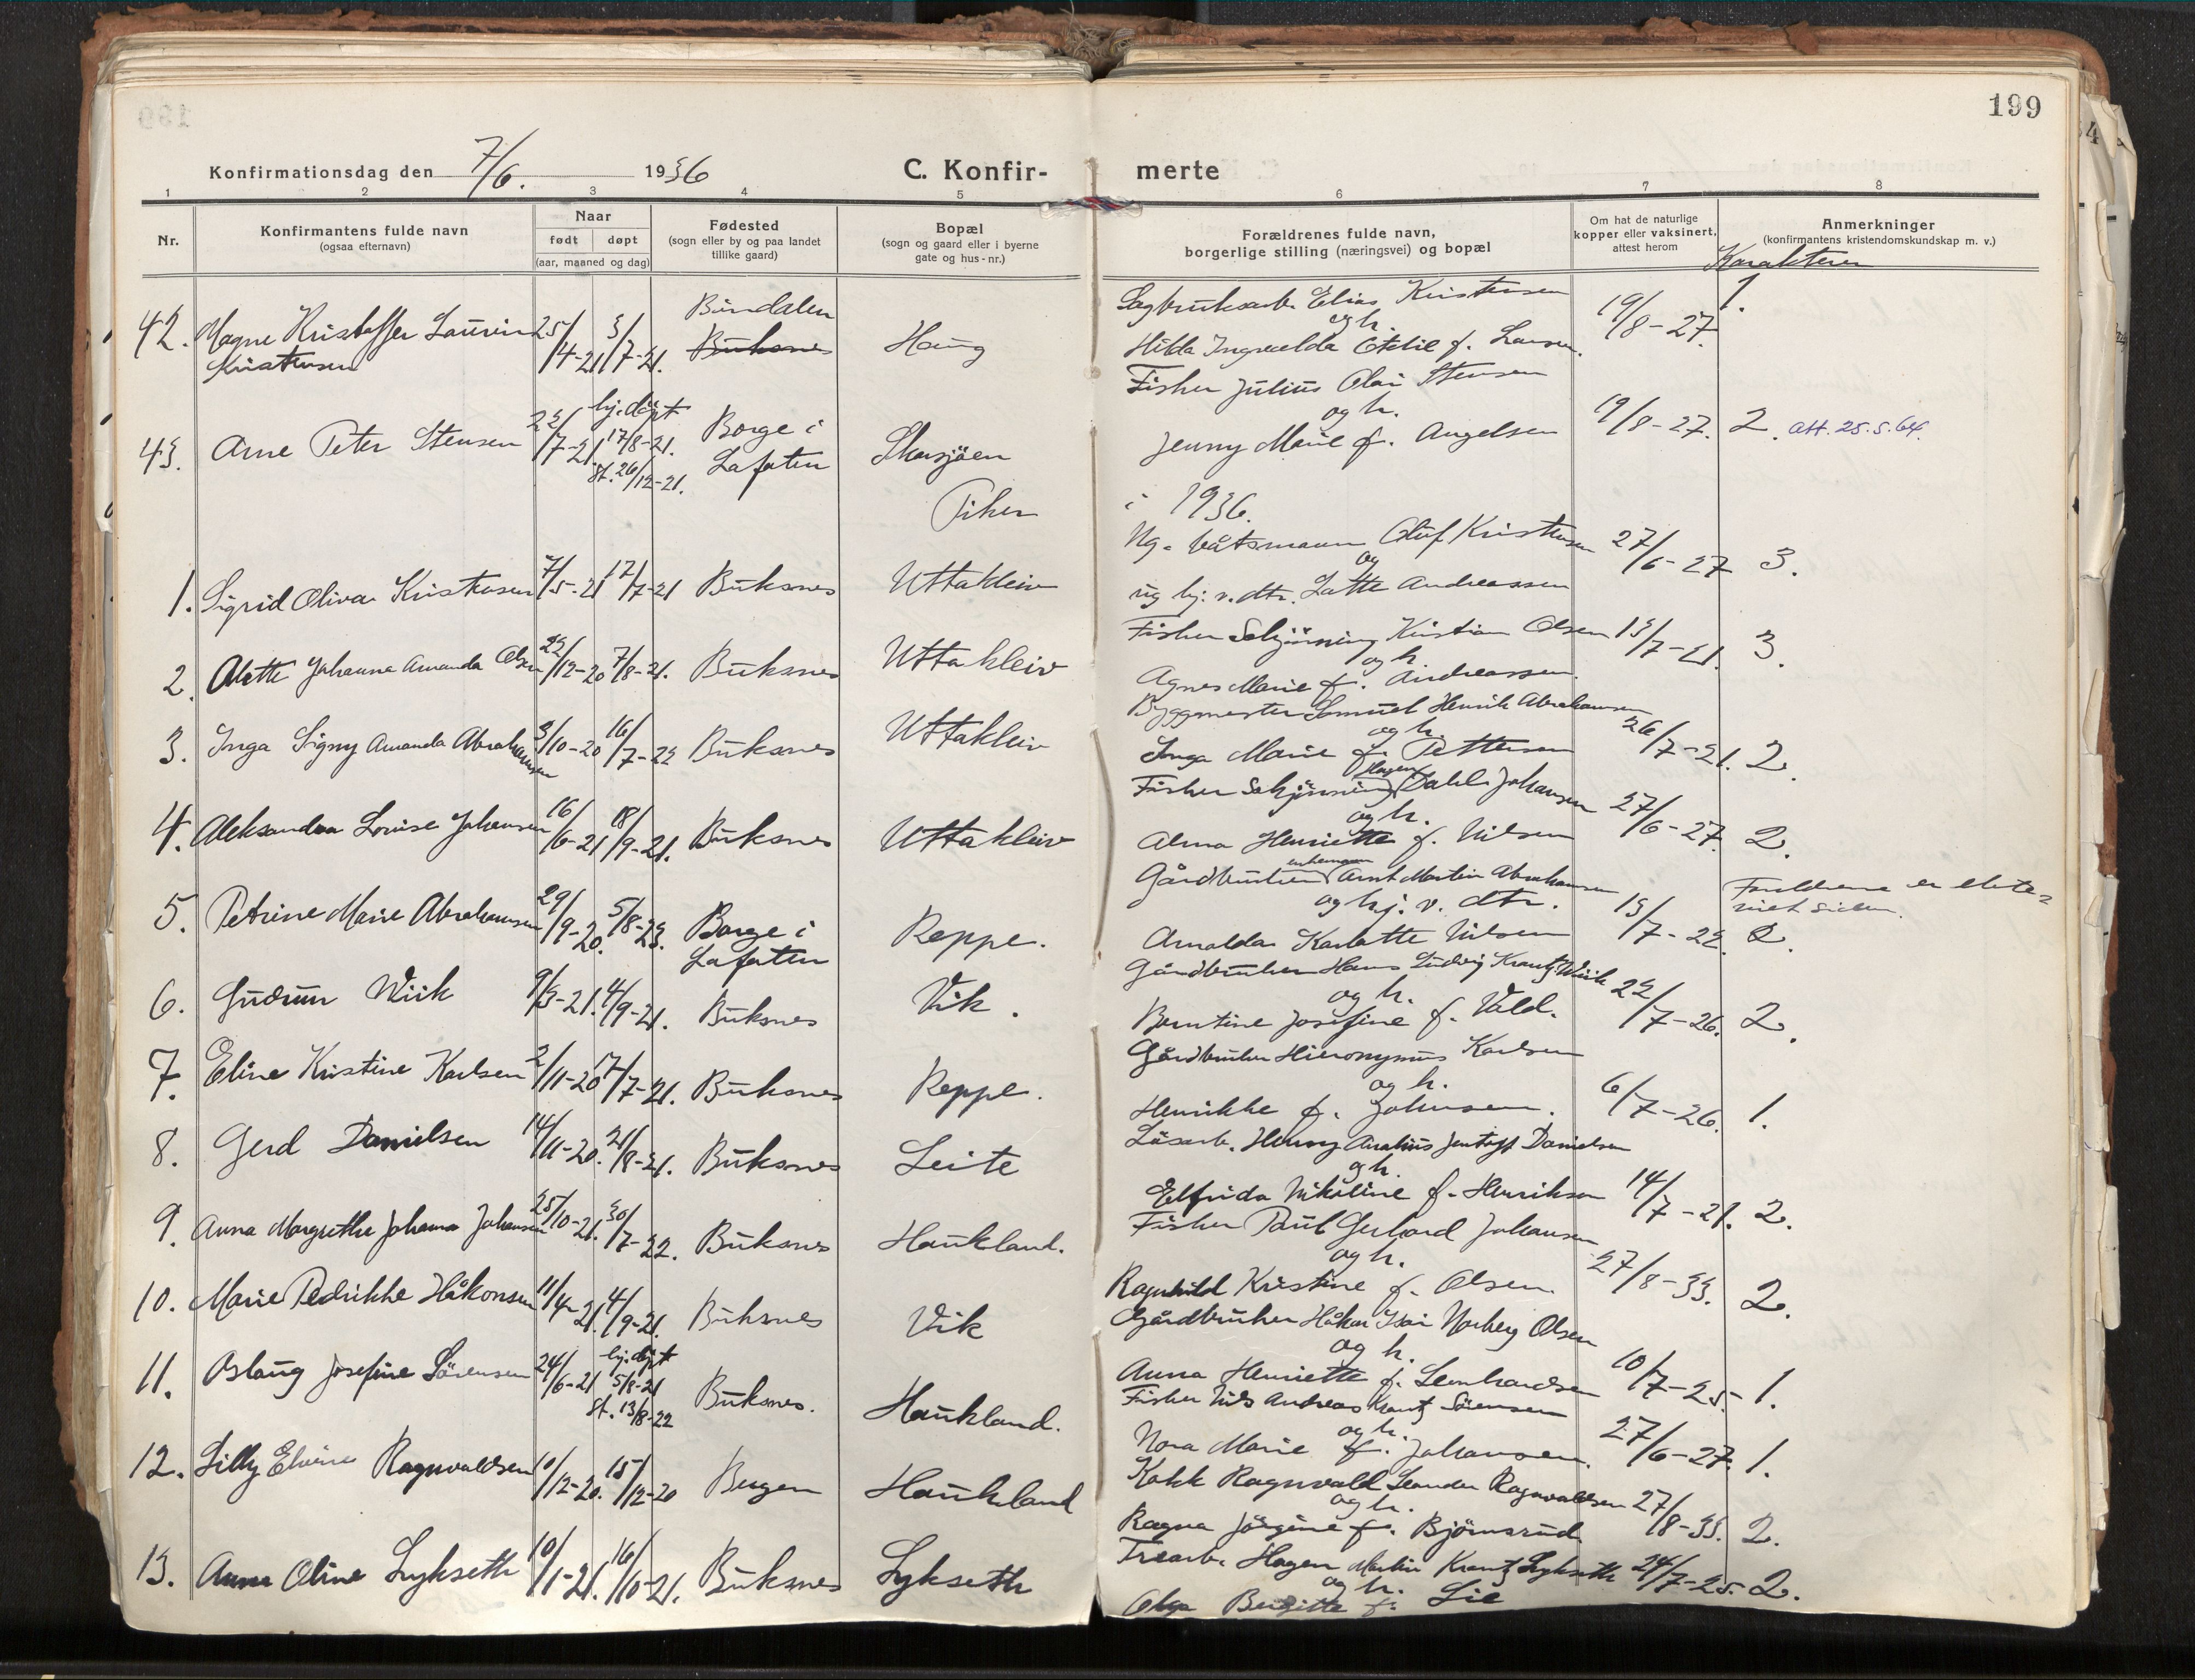 199
Konfirmationsdag den 7/6. 1936 C. Konfir- merte
1 2 3 4 5 6 7 8
Nr.
Konfirmantens fulde navn
(ogsaa efternavn)
Naar
født døpt
(aar, maaned og dag)
Fødested
(sogn eller by og paa landet
tillike gaard)
Bopæl
(sogn og gaard eller i byerne
gate og hus-nr.)
Forældrenes fulde navn,
borgerlige stilling (næringsvei) og bopæl
Om hat de naturlige
kopper eller vaksinert,
attest herom
Anmerkninger
(konfirmantens kristendomskundskap m. v.)
Karakterer
42. Magne Kristoffer Laurin
Kristensen
25/4-21 3/7-21.
Bindalen
Buksnes
Haug
Sagbruksarb. Elias Kristensen
og h.
Hilda Ingvalda Otelie f. Larsen.
19/8-27.
1.
43. Arne Peter Stensen
22/7-21. hj. døpt
17/8-21.
St. 26/12-21.
Borge i
Lofoten
Skarsjøen
Fisker Julius Olai Stensen
og h.
Jenny Marie f. Angelsen
19/8-27. 2. att. 25.5.64.
Piker i 1936.
1. Sigrid Oliva Kristensen
7/5-21 17/7-21 Buksnes Uttakleiv
Ug. båtsmann Oluf Kristensen
og
ug hj. v. dtr. Lotte Andreassen
27/6-27 3.
2. Alette Johanna Amanda Olsen
22/12-20 7/8-21. Buksnes Uttakleiv
Fisker Schjønning Kristian Olsen
og h.
Agnes Marie f. Andreassen.
13/7-21. 3.
3. Inga Signy Amanda Abrahamsen
3/10-20 16/7-22 Buksnes Uttakleiv
Byggmester Samuel Henrik Abrahamsen
og h.
Inga Marie f. Pettersen
26/7-21. 2.
4. Aleksandra Louise Johansen
16/6-21 18/9-21. Buksnes Uttakleiv
Hagen
Fisker Schjønning Dahl Johansen
og h.
Alma Henriette f. Nilsen
27/6-27. 2.
5. Petrine Marie Abrahamsen
29/9-20. 5/8-23. Borge i
Lofoten
Reppe.
enkemann
Gårdbruker Arnt Martin Abrahamsen
og hj. v. dtr.
Arnolda Karlotte Nilsen
13/7-22. 2.
Foreldrene er ekte-
viet siden.
6. Gudrun Wiik
9/3-21. 4/9-21. Buksnes Vik.
Gårdbruker Hans Ludvig Krantz Wiik
og h.
Berntine Josefine f. Vold.
22/7-26. 2.
7. Eline Kristine Karlsen
2/11-20 17/7-21. Buksnes Reppe.
Gårdbruker Hieronymus Karlsen
og h.
Henrikke f. Johnsen.
6/7-26. 1.
8. Gerd Danielsen
14/11-20. 21/8-21. Buksnes Leite
Løsarb. Henry Anatius Jentoft Danielsen
og h.
Elfrida Nikoline f. Henriksen
14/7-21. 2.
9. Anna Margrethe Johanna Johansen
25/10-21. 30/7-22. Buksnes Haukland.
Fisker Paul Gerhard Johansen
og h.
Ragnhild Kristine f. Olsen.
27/8-33. 2.
10. Marie Pedrikke Håkonsen
11/4-21. 4/9-21. Buksnes Vik
Gårdbruker Håkon Isai Norberg Olsen
og h.
Anna Henriette f. Leonhardsen
10/7-25. 1.
11. Aslaug Josefine Sørensen
24/6-21 hj. døpt
5/8-21
St. 13/8-22
Buksnes. Haukland.
Fisker Nils Andreas Krantz Sørensen
og h.
Nora Marie f. Johansen.
27/6-27. 1.
12. Lilly Elvine Ragnvaldsen
10/12-20. 15/12-20 Bergen Haukland
Kokk Ragnvald Leander Ragnvaldsen
og h.
Ragna Jørgine f. Bjørnsrud
27/8-33. 2.
13. Anna Oline Lykseth
10/1-21. 16/10-21. Buksnes Lykseth
Trearb. Hagen Martin Krantz Lykseth
og h.
Olga Bergitte f. Lie
24/7-25. 2.